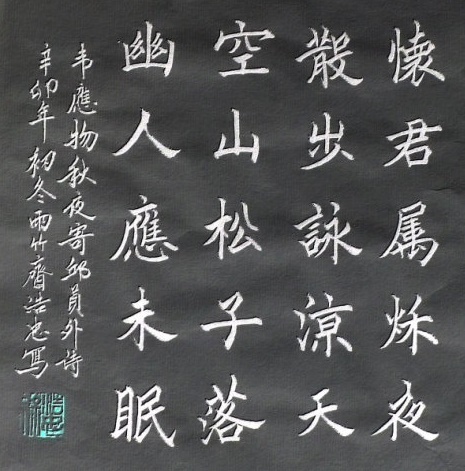 懷君属秌夜
散步詠凉天
空山松子落
幽人應未眠
韦應物秋夜寄邱員外詩
辛卯年初冬雨竹齋浩忠寫